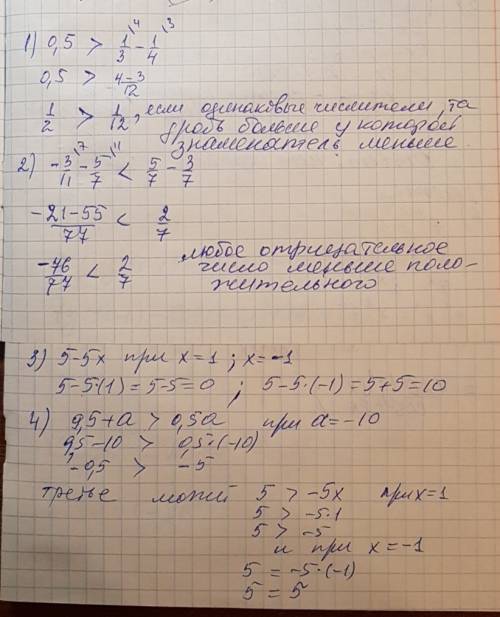 1) 0,5 > 1/3 \4 - 1/4 \3
0,5 > 4-3/12
1/2 > 1/12, если одинаковые числители, та
дробь больше у которой
знаменатель меньше
2) -3/11 \7 - 5/7 \11 < 5/7 - 3/7
-21-55/77 < 2/7
-76/77 < 2/7 любое отрицательное
число меньше поло-
жительного
3) 5-5x при x=1; x=-1
5-5·(1)=5-5=0 ; 5-5·(-1)=5+5=10
4) 9,5+a > 0,5a при a=-10
9,5-10 > 0,5·(-10)
-0,5 > -5
третье может 5 > -5x при x=1
5 > -5·1
5 > -5
и при x=-1
5 = -5·(-1)
5 = 5